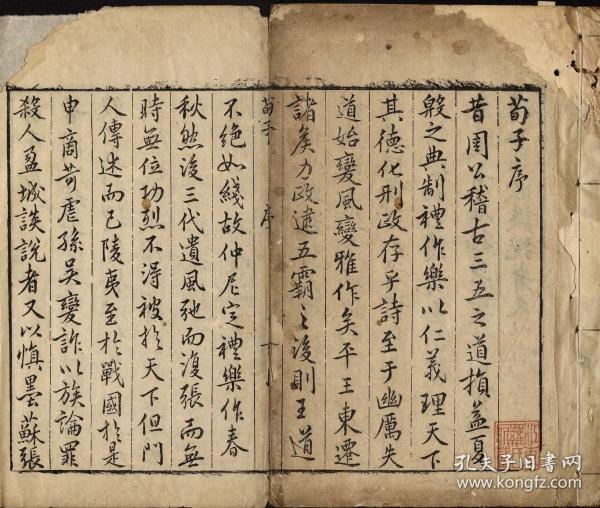 荀子序
昔周公稽古三五之道損益夏
殷之典制禮作樂以仁義理天下
其德化刑政存乎詩至于幽厲失
道始變風變雅作矣平王東遷
諸矦力政逮五霸之後則王道
荀子 序
不絕如綫故仲尼定禮樂作春
秋然後三代遺風弛而復張而無
時無位功烈不得被於天下但門
人傳述而已陵夷至於戰國於是
申商苛虐孫吳變詐以族論罪
殺人盈城談說者又以慎墨蘇張
孔夫子旧书网
www.kongfz.com